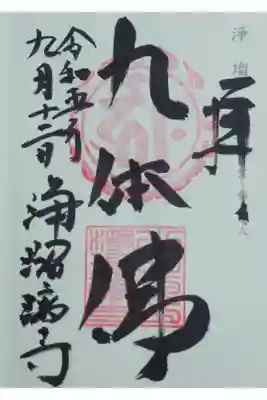 拝
九体佛
令和五年
九月十二日
浄瑠璃寺